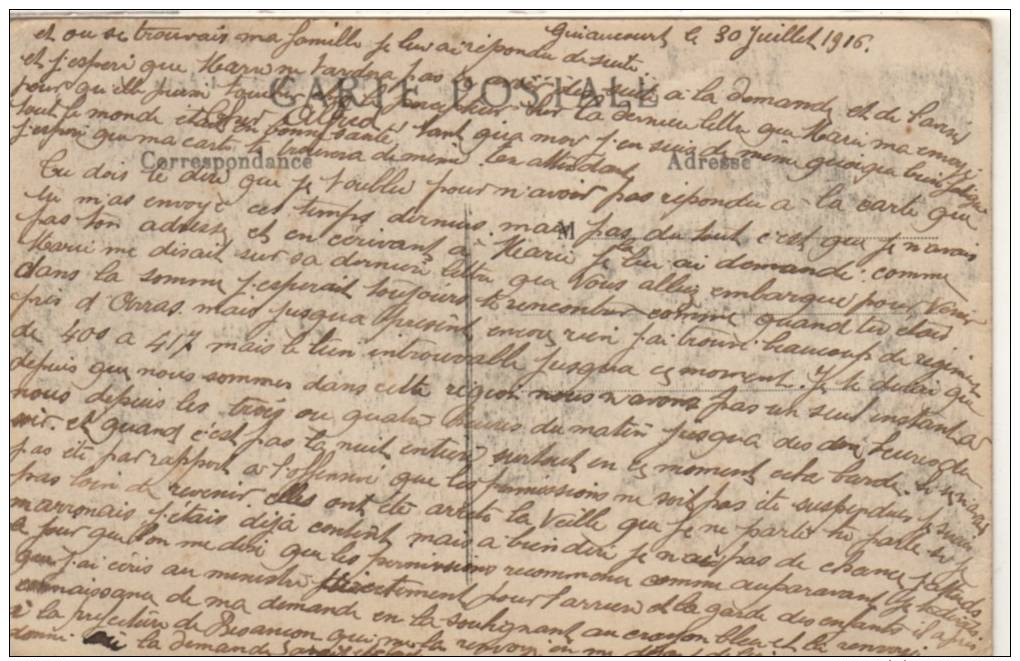 Guiaucourt le 30 Juillet 1916.
et ou se trouvais ma famille je leur ai répondu desuite
et j'esperé que Marie ne tardera pas la demande et de l'avis
CARTE POSTALE
pour qu'elle puisse la derniere lettre que Marie ma envoyé
tout le monde étais en bonne santé, tant qua moi j'en suis de meme quoique bien fatigué
j'espere que ma carte te trouvera de meme En attendant
Correspondance Adresse
Tu dois te dire que je t'oublie pour n'avoir pas répondu a la carte que
tu m'as envoyé ces temps derniers mais pas du tout c'est que je n'avais
M
pas ton adresse et en ecrivant à Marie je lui ai demandé: comme
Marie me disait sur sa derniere lettre que vous alliez embarque pour venir
dans la somme j'esperait toujours te rencontrer comme quand tu etais
pres d'Arras. mais jusqua present encore rien j'ai trouvé beaucoup de regiment
de 400 a 417 mais le tien introuvable jusqua ce moment. Je te dirai que
depuis que nous sommes dans cette region nous n'avons pas un seul instant a
nous depuis les trois ou quatre heures du matin jusqua des heures du
soir. et quand c'est pas la nuit entiere surtout en ce moment cela barde. si n'avais
pas été par rapport a l'offensive que les permissions ne soit pas été suspendues je serais
pas loin de revenir elles ont été arreté la veille que je ne parte tu parle si je
marronais j'étais déjà content mais a bien dire je n'ai pas de chance j'attends
le jour que l'on me dise que les permissions recommence comme auparavant. Je te dirais
que j'ai écris au ministre directement pour l'arriere et la garde des enfants il a pris
connaissance de ma demande en la soulignant au crayon bleu et la renvoyé
à la préfecture de Besançon qui me la renvoyé en me
donné la demande